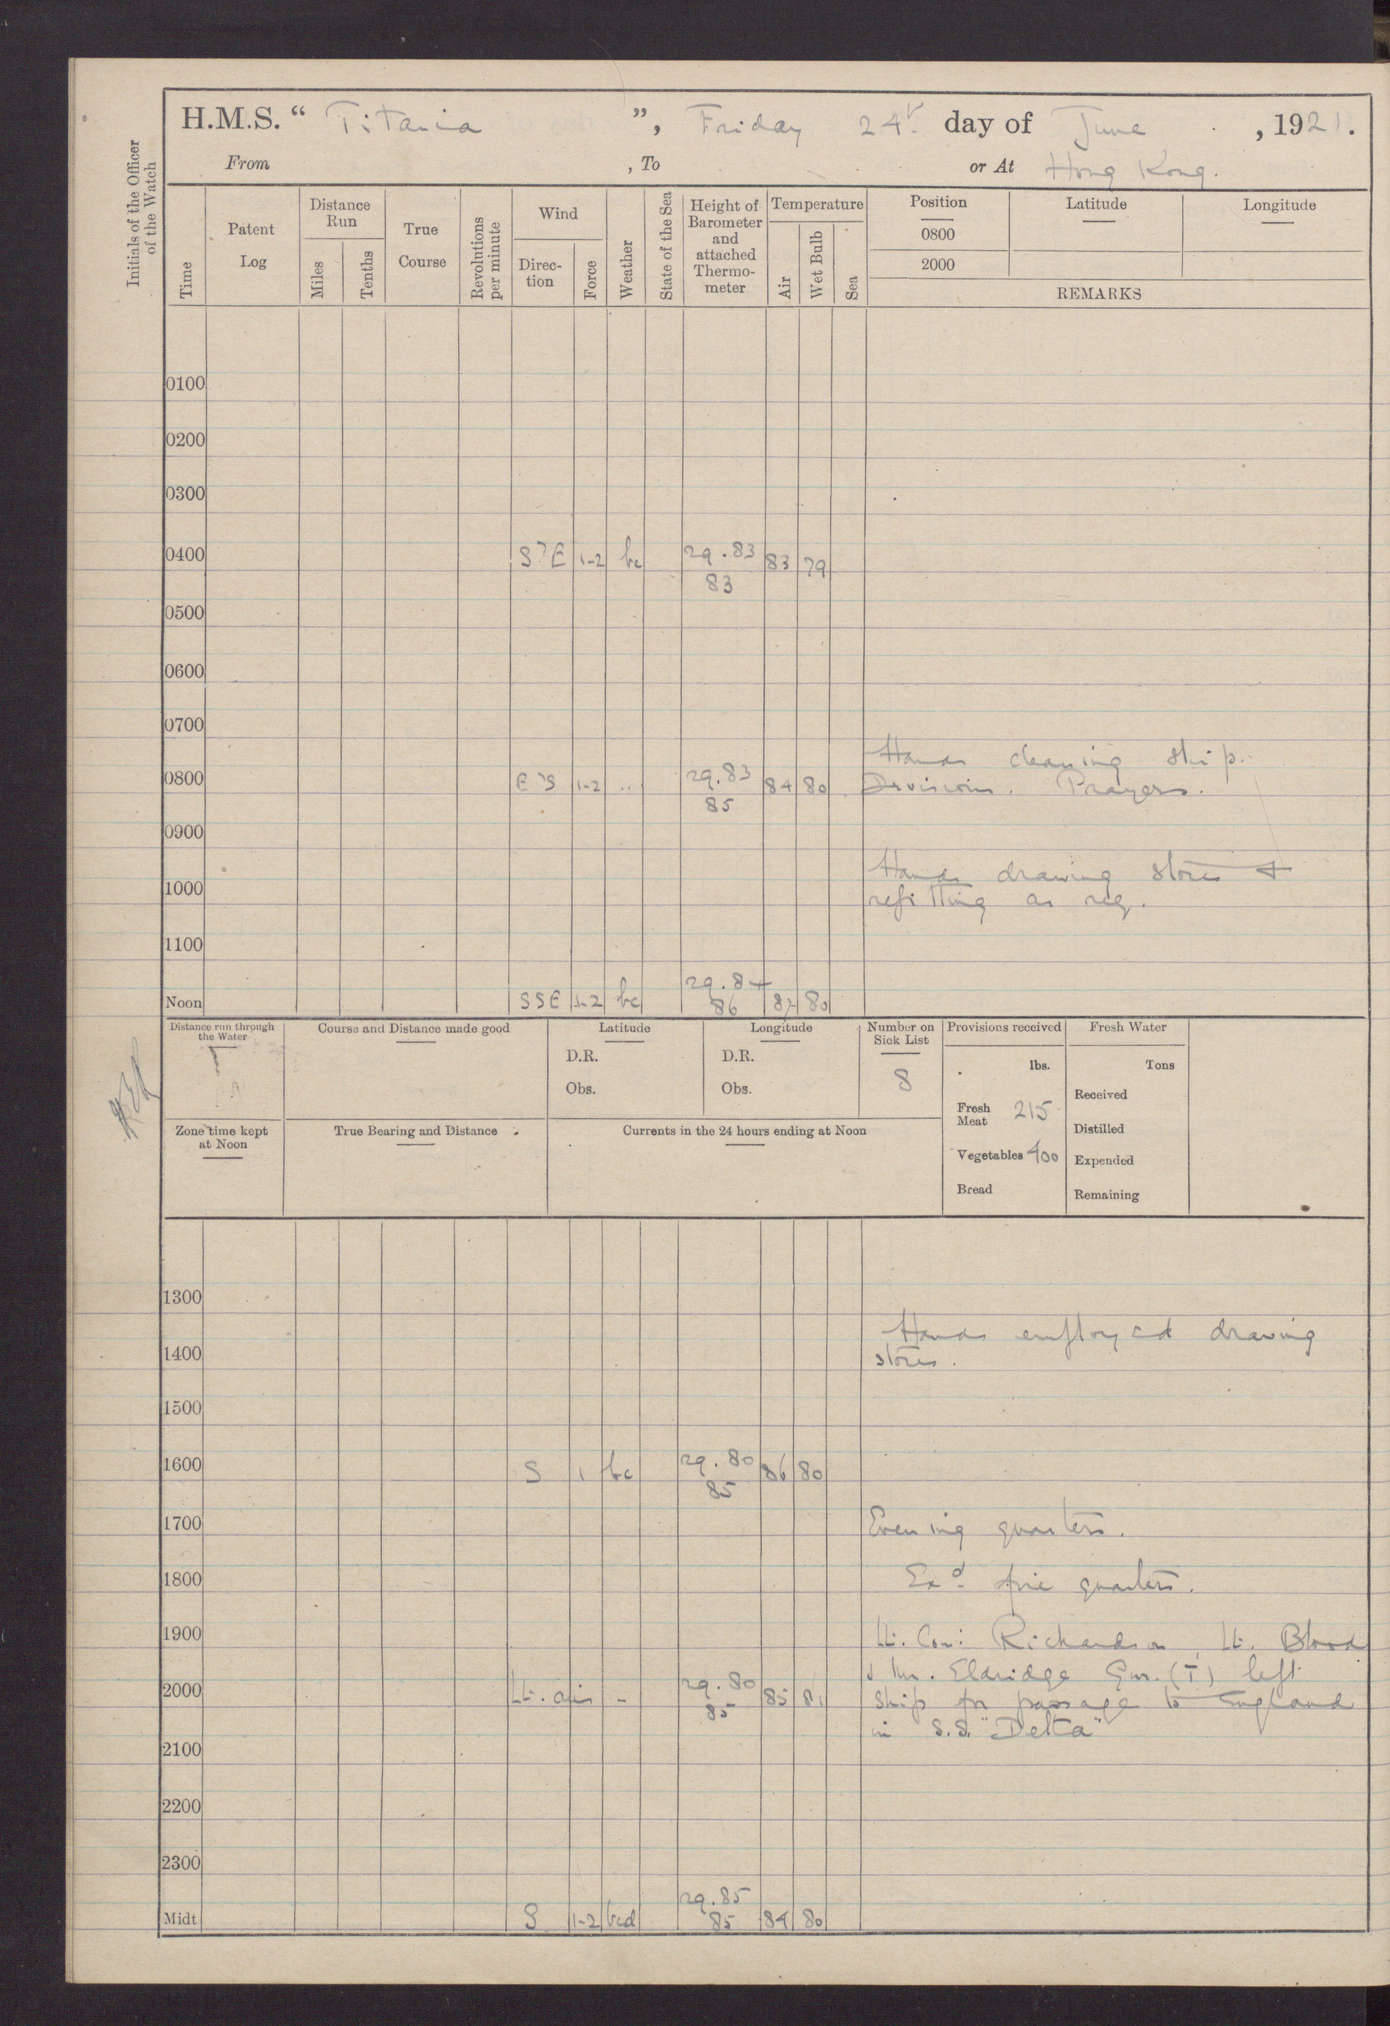 H.M.S. “ Titania ”, Friday 24th day of June , 1921.
From , To or At Hong Kong.
Initials of the Officer of the Watch
Time
Patent Log
Distance Run
Miles
Tenths
True Course
Revolutions per minute
Wind
Direc-tion
Force
Weather
State of the Sea
Height of Barometer and attached Thermo-meter
Temperature
Air
Wet Bulb
Sea
Position Latitude Longitude
0800
2000
REMARKS
0100
0200
0300
0400 S'E 1-2 bc 29.83 83 79
83
0500
0600
0700
Hands cleaning ship.
0800 E'S 1-2 .. 29.83 84 80 Divisions. Prayers.
85
0900
Hands drawing stores +
1000
refitting as req.
1100
Noon SSE 1-2 bc 29.84 80
86
Distance run through the Water
Course and Distance made good
Latitude
D.R.
Obs.
Longitude
D.R.
Obs.
Number on Sick List
8
Provisions received
lbs.
Fresh Meat 215
Vegetables 400
Bread
Fresh Water
Tons
Received
Distilled
Expended
Remaining
Zone time kept at Noon
True Bearing and Distance
Currents in the 24 hours ending at Noon
1300
Hands employed drawing
1400 stores.
1500
1600 S 1 bc 29.80 86 80
85
1700 Evening quarters.
1800 Exd. fire quarters.
1900 Lt. Com: Richardson, Lt. Blood
& Mr. Eldridge Gnr. (T) left
2000 Lt. airs - 29.80 85 81 ship for passage to England
85
in S.S. "Delta"
2100
2200
2300
Midt. S 1-2 bcd 29.85 84 80
85